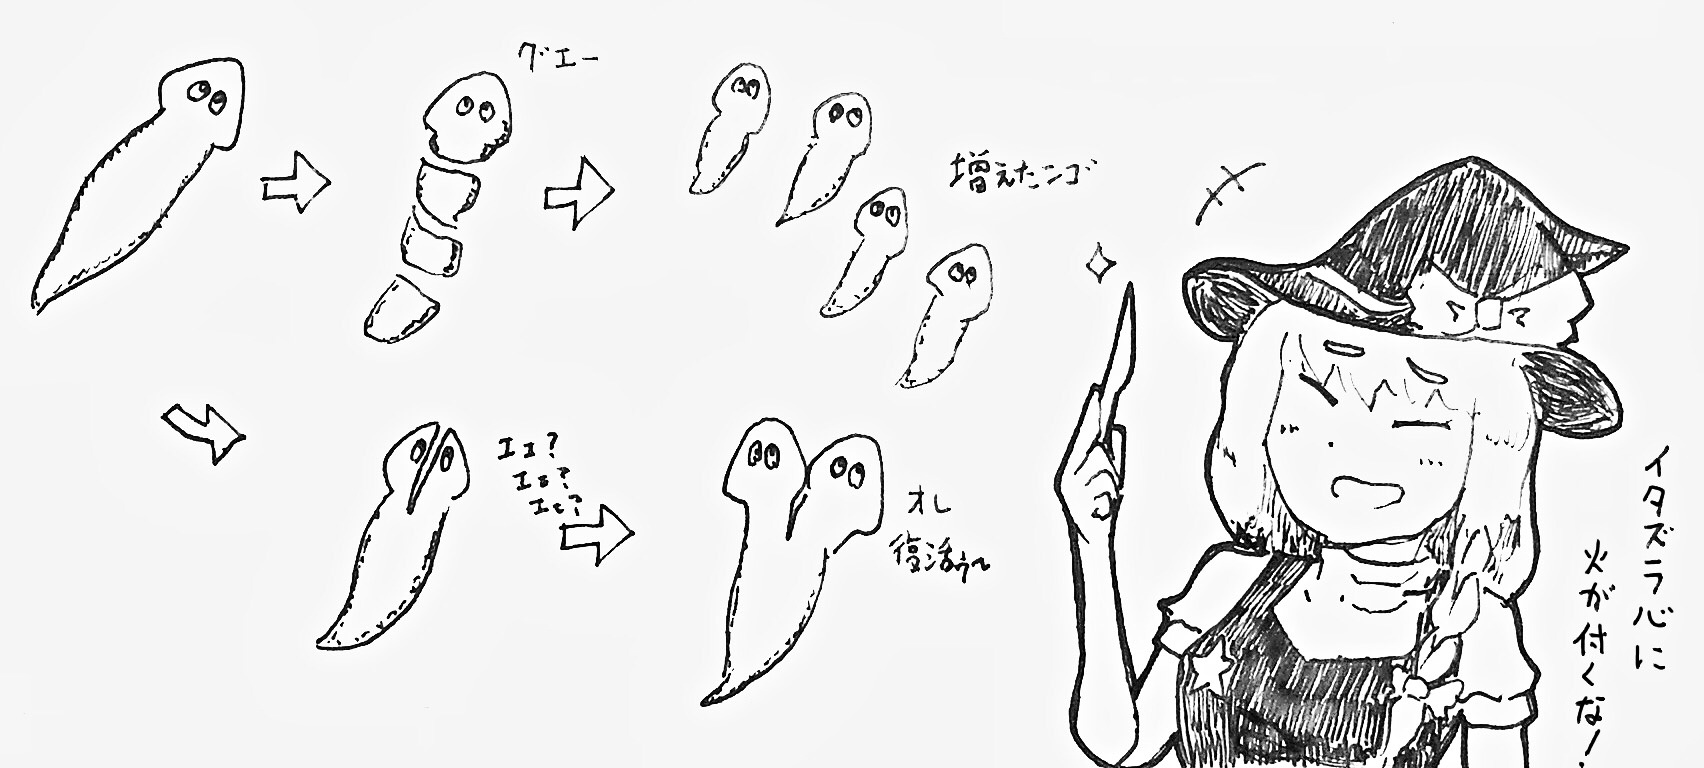 グエー
増えたンゴ
エェ?
エェ?
エェ?
オレ
復活ゥ〜
イタズラ心に
火が付くな!